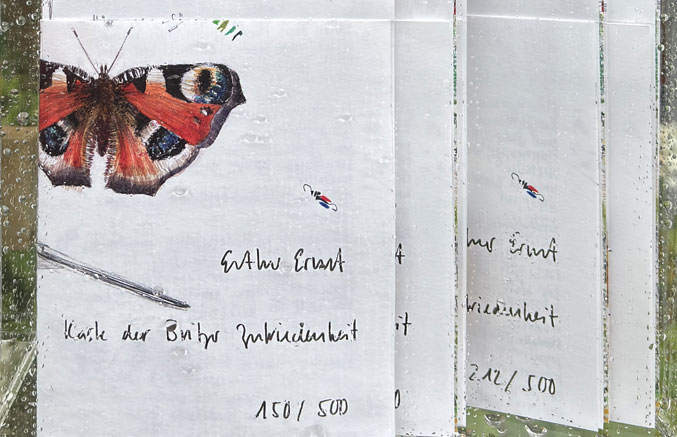 Esther Ernst
Karte der Britzer Zufriedenheit
150/500
t
it
her Ernst
friedenheit
212/500